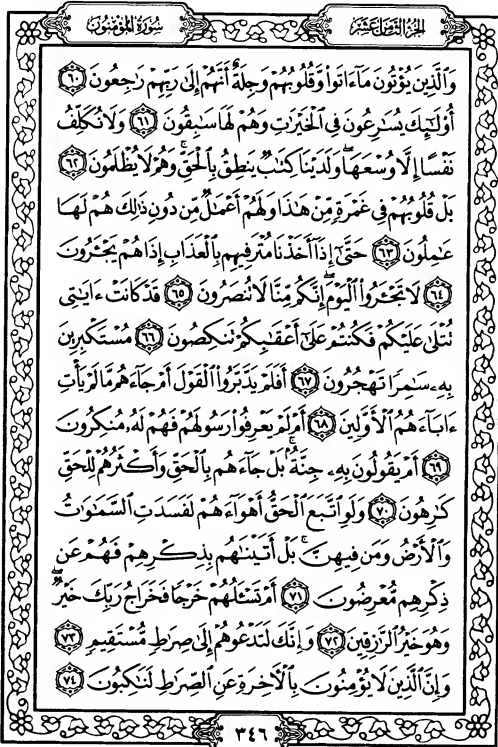 سُورَةُ المُؤْمِنُونَ
الجُزْءُ الثَّامِنَ عَشَرَ
وَٱلَّذِينَ يُؤْتُونَ مَآءَاتَوا۟ وَّقُلُوبُهُمْ وَجِلَةٌ أَنَّهُمْ إِلَىٰ رَبِّهِمْ رَٰجِعُونَ ٦٠
أُو۟لَٰٓئِكَ يُسَٰرِعُونَ فِى ٱلْخَيْرَٰتِ وَهُمْ لَهَا سَٰبِقُونَ ٦١ وَلَا نُكَلِّفُ
نَفْسًا إِلَّا وُسْعَهَا ۖ وَلَدَيْنَا كِتَٰبٌ يَنطِقُ بِٱلْحَقِّ ۚ وَهُمْ لَا يُظْلَمُونَ ٦٢
بَلْ قُلُوبُهُمْ فِى غَمْرَةٍ مِّنْ هَٰذَا وَلَهُمْ أَعْمَٰلٌ مِّن دُونِ ذَٰلِكَ هُمْ لَهَا
عَٰمِلُونَ ٦٣ حَتَّىٰٓ إِذَآ أَخَذْنَا مُتْرَفِيهِم بِٱلْعَذَابِ إِذَا هُمْ يَجْـَٔرُونَ
٦٤ لَا تَجْـَٔرُوا۟ ٱلْيَوْمَ ۖ إِنَّكُم مِّنَّا لَا تُنصَرُونَ ٦٥ قَدْ كَانَتْ ءَايَٰتِى
تُتْلَىٰ عَلَيْكُمْ فَكُنتُمْ عَلَىٰٓ أَعْقَٰبِكُمْ تَنكِصُونَ ٦٦ مُسْتَكْبِرِينَ
بِهِۦ سَٰمِرًا تَهْجُرُونَ ٦٧ أَفَلَمْ يَدَّبَّرُوا۟ ٱلْقَوْلَ أَمْ جَآءَهُم مَّا لَمْ يَأْتِ
ءَابَآءَهُمُ ٱلْأَوَّلِينَ ٦٨ أَمْ لَمْ يَعْرِفُوا۟ رَسُولَهُمْ فَهُمْ لَهُۥ مُنكِرُونَ
٦٩ أَمْ يَقُولُونَ بِهِۦ جِنَّةٌۢ ۚ بَلْ جَآءَهُم بِٱلْحَقِّ وَأَكْثَرُهُمْ لِلْحَقِّ
كَٰرِهُونَ ٧٠ وَلَوِ ٱتَّبَعَ ٱلْحَقُّ أَهْوَآءَهُمْ لَفَسَدَتِ ٱلسَّمَٰوَٰتُ
وَٱلْأَرْضُ وَمَن فِيهِنَّ ۚ بَلْ أَتَيْنَٰهُم بِذِكْرِهِمْ فَهُمْ عَن
ذِكْرِهِم مُّعْرِضُونَ ٧١ أَمْ تَسْـَٔلُهُمْ خَرْجًا فَخَرَاجُ رَبِّكَ خَيْرٌ ۖ
وَهُوَ خَيْرُ ٱلرَّٰزِقِينَ ٧٢ وَإِنَّكَ لَتَدْعُوهُمْ إِلَىٰ صِرَٰطٍ مُّسْتَقِيمٍ ٧٣
وَإِنَّ ٱلَّذِينَ لَا يُؤْمِنُونَ بِٱلْأَخِرَةِ عَنِ ٱلصِّرَٰطِ لَنَٰكِبُونَ ٧٤
٣٤٦